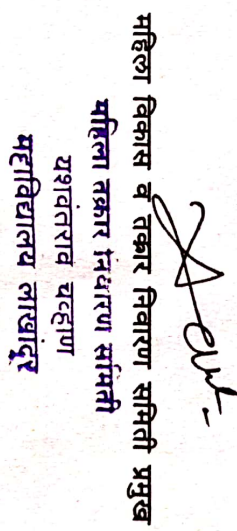 महिला विकास व तक्रार निवारण समिती प्रमुख
महिला तक्रार निवारण समिती
यशवंतराव चव्हाण
महाविद्यालय लाखांदूर